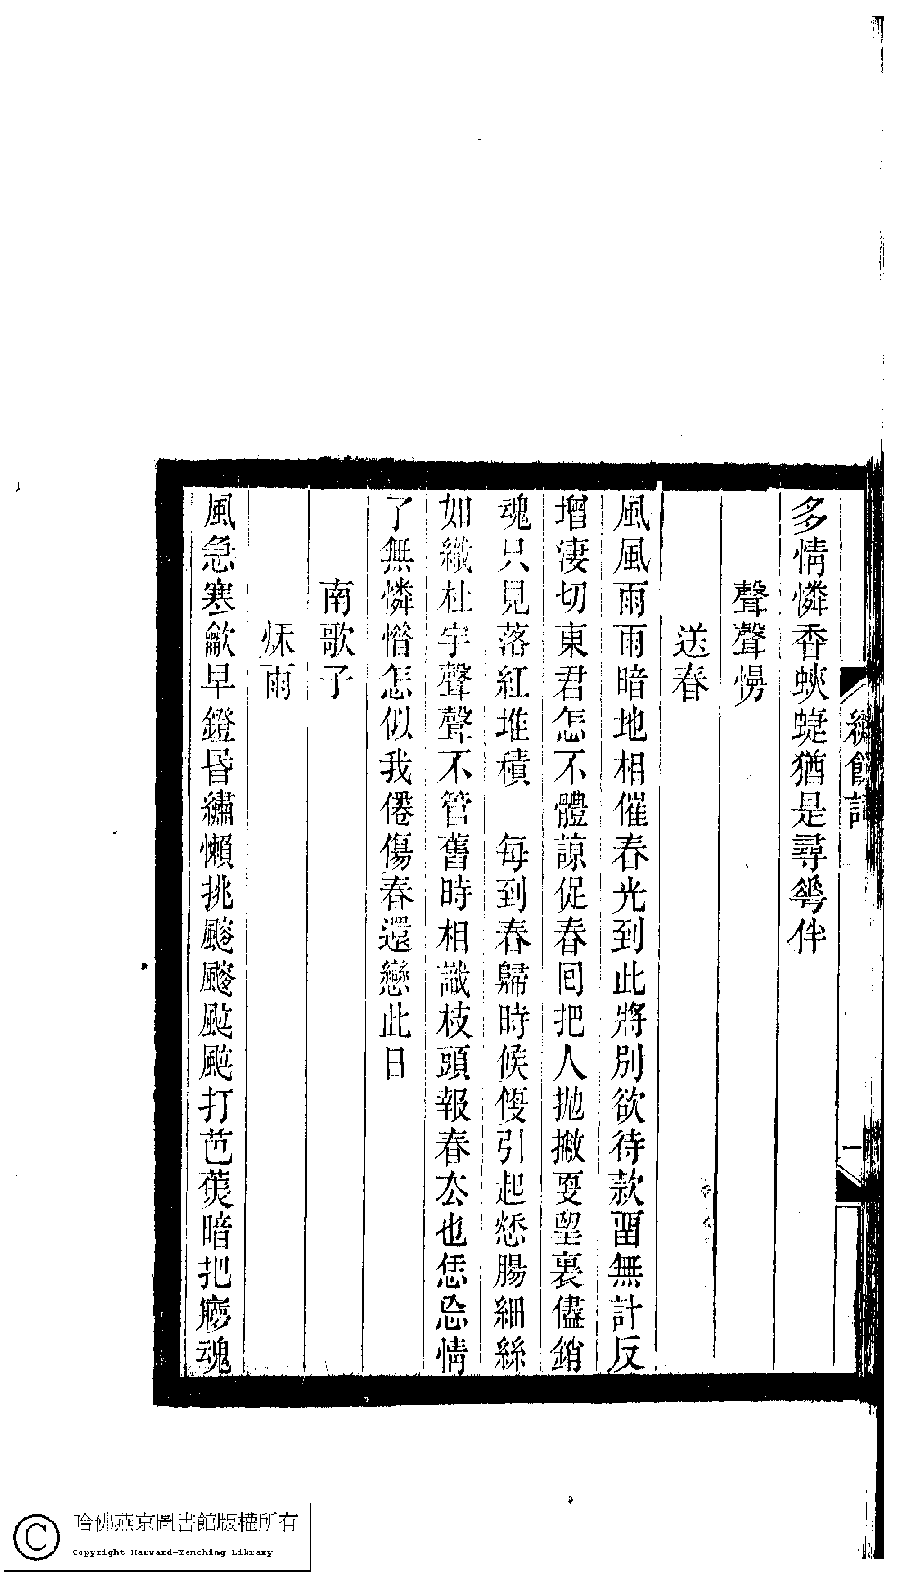 多情憐香蛺蜨猶是尋花伴
聲聲慢
送春
風風雨雨暗地相催春光到此將別欲待款留無計反
增淒切東君怎不體諒促春回把人拋撇耍望裏儘銷
魂只見落紅堆積　每到春歸時候便引起愁腸細絲
如纖杜宇聲聲不管舊時相識枝頭報春去也恁忩情
了無憐惜怎似我倦傷春還戀此日
南歌子
秌雨
風急寒歈早鐙昏繡懶挑颼颼颭颭打芭蕉暗把廫魂
繡餘詞
一
哈佛燕京圖書館版權所有
Copyright Harvard-Yenching Library